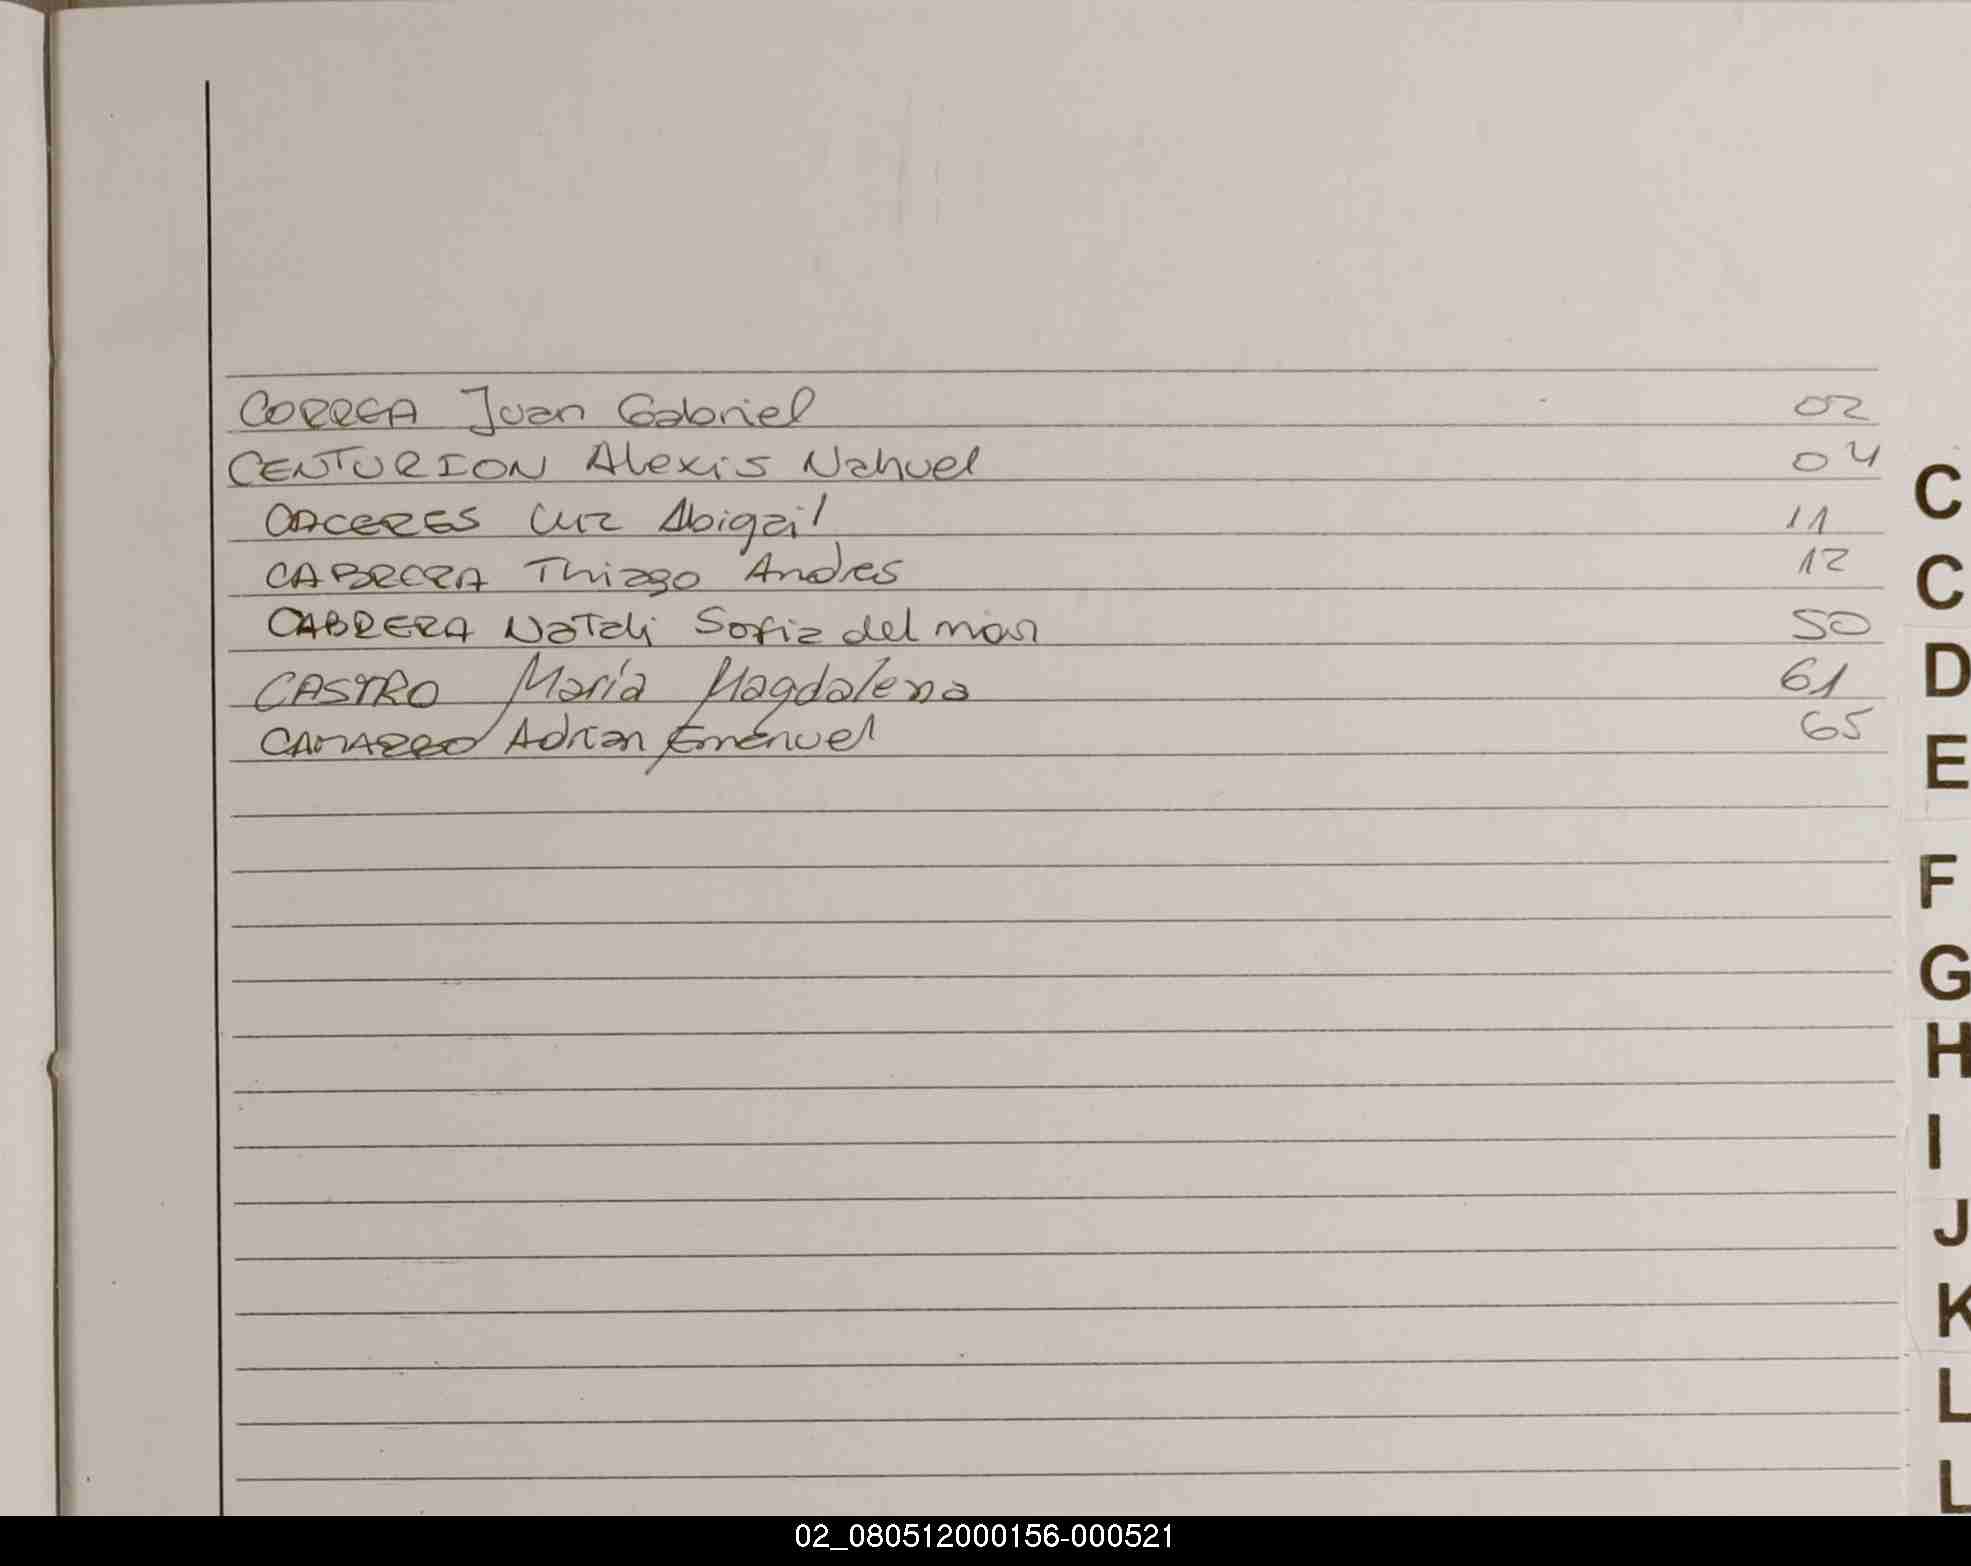 CORREA Juan Gabriel 02
CENTURION Alexis Nahuel 04
CACERES Luz Abigail 11
CABRERA Thiago Andres 12
CABRERA Natali Sofia del mar 50
CASTRO María Magdalena 61
Adrian Emanuel 65
C
C
D
E
F
G
H
I
J
K
L
L
02_080512000156-000521